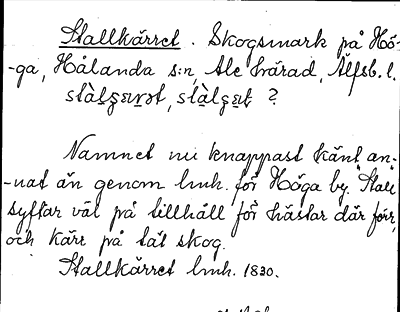 Stallkärret. Skogsmark på Hö-
-ga, Hålanda s:n, Ale härad, Älfsb. l.
?
Namnet nu knappast känt an-
-nat än genom lmh. för Höga by. "Stall"
syftar väl på tillhåll för hästar där förr,
och kärr på tät skog.
Stallkärret lmh. 1830.